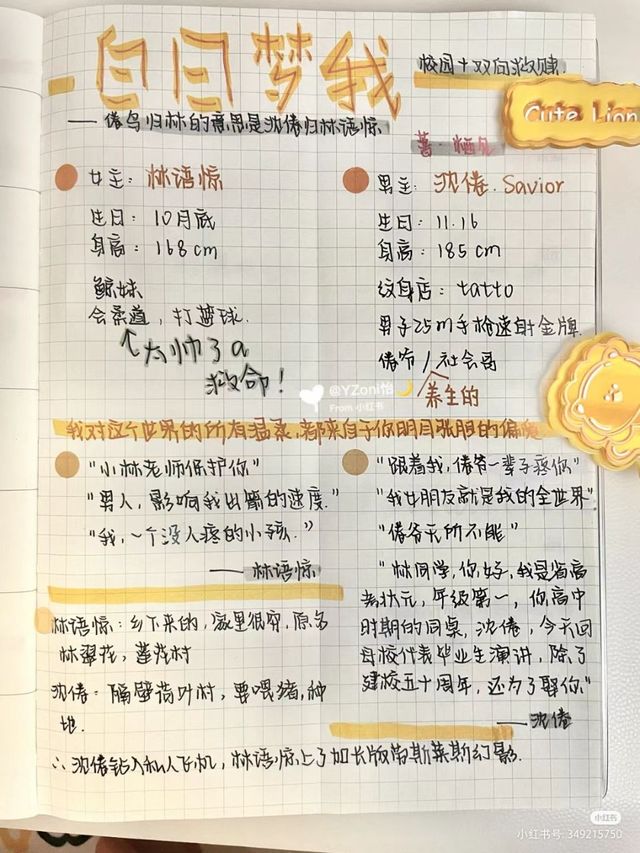 白日梦我
校园+双向救赎
Cute Lion
——倦鸟归林的意思是沈倦归林语惊
著·栖见
女主：林语惊
生日：10月底
身高：168cm
鲸妹
会柔道，打篮球.
太帅了a
救命！
男主：沈倦.Savior
生日：11.16
身高：185cm
纹身店：tatto
男子25m手枪速射金牌
倦爷/社会哥
养生的
@YZoni怡🌙
From 小红书
我对这个世界的所有温柔,都来自于你明目张胆的偏爱
"小林老师保护你"
"男人，影响我出箭的速度."
"我，一个没人疼的小孩."
——林语惊
"跟着我，倦爷一辈子疼你"
"我女朋友就是我的全世界"
"倦爷无所不能"
"林同学，你好，我是省高
考状元，年级第一，你高中
时期的同桌，沈倦，今天回
母校代表毕业生演讲，除了
建校五十周年，还为了娶你"
——沈倦
林语惊：乡下来的，家里很穷，原名
林翠花，莲花村
沈倦：隔壁荷叶村，要喂猪，种
地.
∴沈倦钻入私人飞机，林语惊上了加长版劳斯莱斯幻影.
小红书
小红书号：349215750